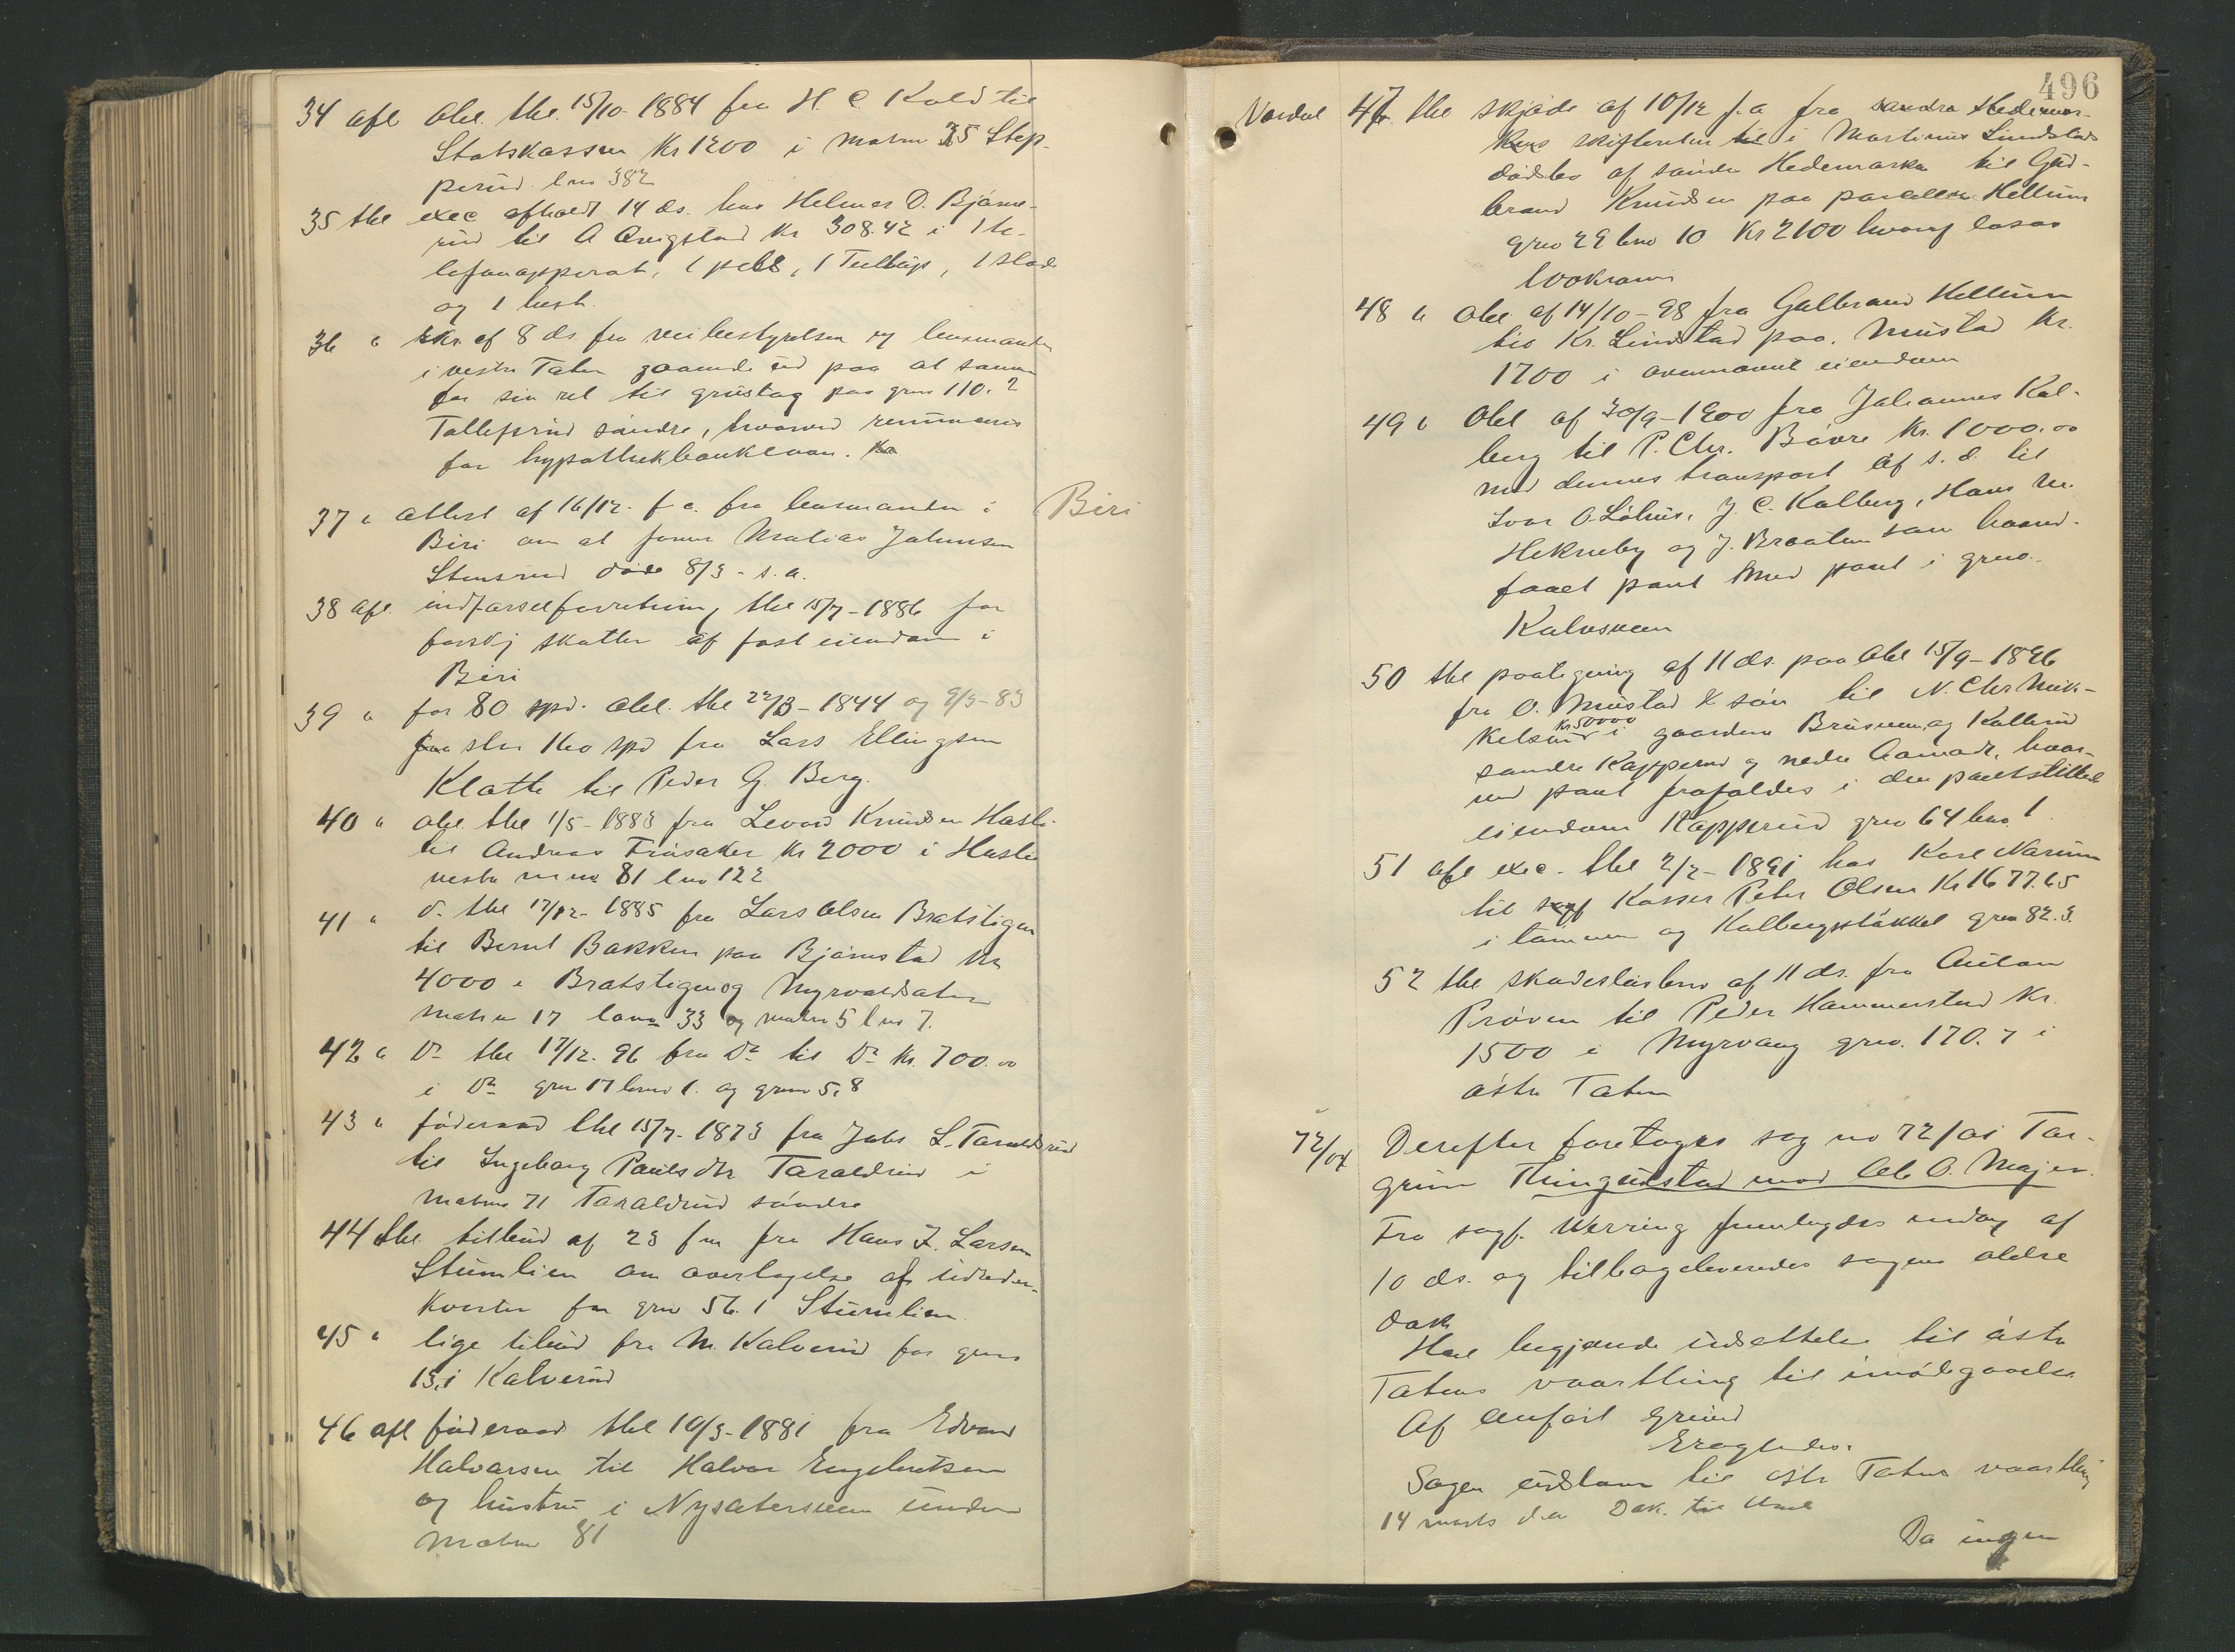 34 afl obl. thl. 15/10-1884 fra H C Kold til
Statskassen Kr 1200 i matrn 35 Step-
perud lno 382
35 thl exec afholdt 14 ds. hos Helmer O. Bjørne-
rud til A Qvigstad Kr 308.42 i 1 te-
lefonapperat, 1 pels, 1 Tullup, 1 slæde
og 1 hest.
36 " skr. af 8 ds. fra veibestyrelsen og lensmanden
i vestre Toten gaaende ud paa at samme
for sin ret til grustag paa gno 110. 2
Tollefsrud søndre, hvorved renuncieres
for hypothekbanklaan.
37 " attest af 16/12 f.a. fra lensmanden i Biri
Biri om at Matias Johnsen
Stensrud døde 8/3 - s.a.
38 afl. indførselforretning thl 15/7-1886 for
forskj skatter af fast eiendom i
Biri
39 " for 80 spd. obl. thl 22/3-1844 og 9/3-83
stor 160 spd fra Lars Ellingsen
Klætte til Peder G. Berg.
40 " obl. thl 1/5-1883 fra Knudsen Hasle
til Andreas Frøsaker Kr 2000 i Hasle
vestre mno 81 lno 122
41 " do. thl 17/12-1885 fra Lars Olsen Bratstigen
til Bernt Bakken paa Bjørnstad Kr
4000 i Bratstigen og Myrvoldsæter
matrn 17 lono 33 og matrn 5 lno 7.
42 " Do thl 17/12-96 fra Do til Do Kr. 700.00
i Do gno 17 bno 1. og gno 5,8
43 " føderaad thl 15/7-1873 fra Johs L. Taraldsrud
til Ingeborg Paulsdtr Taraldrud i
matrno 71 Taraldrud søndre
44 thl tilbud af 23 fm fra Hans J. Larsen
Stumlien om overtagelse af udreder-
Kvoten for gno 56.1 Stumlien.
45 " lige tilbud fra M. Kalverud for gno
13,1 Kalverud
46 afl føderaad thl 19/3-1881 fra Edvard
Halvorsen til Halvor Engebretsen
og hustru i Nysætersveen under
matrno 81
496
Vardal 47 thl skjøde af 10/12 f.a fra søndre Hedemar-
kens skifteretten i Martinus Lundstads
dødsbo af søndre Hedemarken til Gud-
brand Knudsen paa parcellen Hellum
gno 29 bno 10 Kr 2100 hvoraf løsøre
100 kroner
48 " obl af 14/10-98 fra Gulbrand Hellum
til Kr. Lindstad paa Mustad Kr.
1700 i ovennævnte eiendom
49 " obl af 30/9-1900 fra Johannes Kal-
berg til P. Chr. Bøvre Kr. 1000.00
med dennes transport af s.d. til
Ivar O. Løhus, J. C. Kalberg, Hans M.
Hekneby og J. Braaten som haand-
faaet pant med pant i gno
Kalvsveen
50 thl paategning af 11 ds. paa obl 15/9-1896
fra O. Mustad & søn til N. Chr Mik-
kelsen Kr 50000 i gaardene Brusveen og Kallerud
søndre Kapperud og nedre Aamodt, hvor-
ved pant frafaldes i den pantstillede
eiendom Kapperud gno 64 bno 1.
51 afl exec. thl 2/2-1891 hos Karl Narum
til Kasser Peter Olsen Kr 1677.65
i tømmer og Kalbergsløkken gno 82.3
52 thl skadesløsbrev af 11 ds. fra Anton
Prøven til Peder Hammerstad Kr.
1500 i Myrvang gno. 170. 7 i
østre Toten
72/04 Derefter foretoges sag no 72/01 Tor-
grim Thingelstad mod Ole O. Majer.
Fra sagf. Werring fremlagdes indlæg af
10 ds. og tilbageleveredes sagens ældre
dok.
Han begjærede udsættelse til østre
Totens vaarthing til imødegaaelse
Af anført grund
Eragtedes.
Sagen udstaar til østr Totens vaarthing
14 marts d.a Dok. til
Da ingen